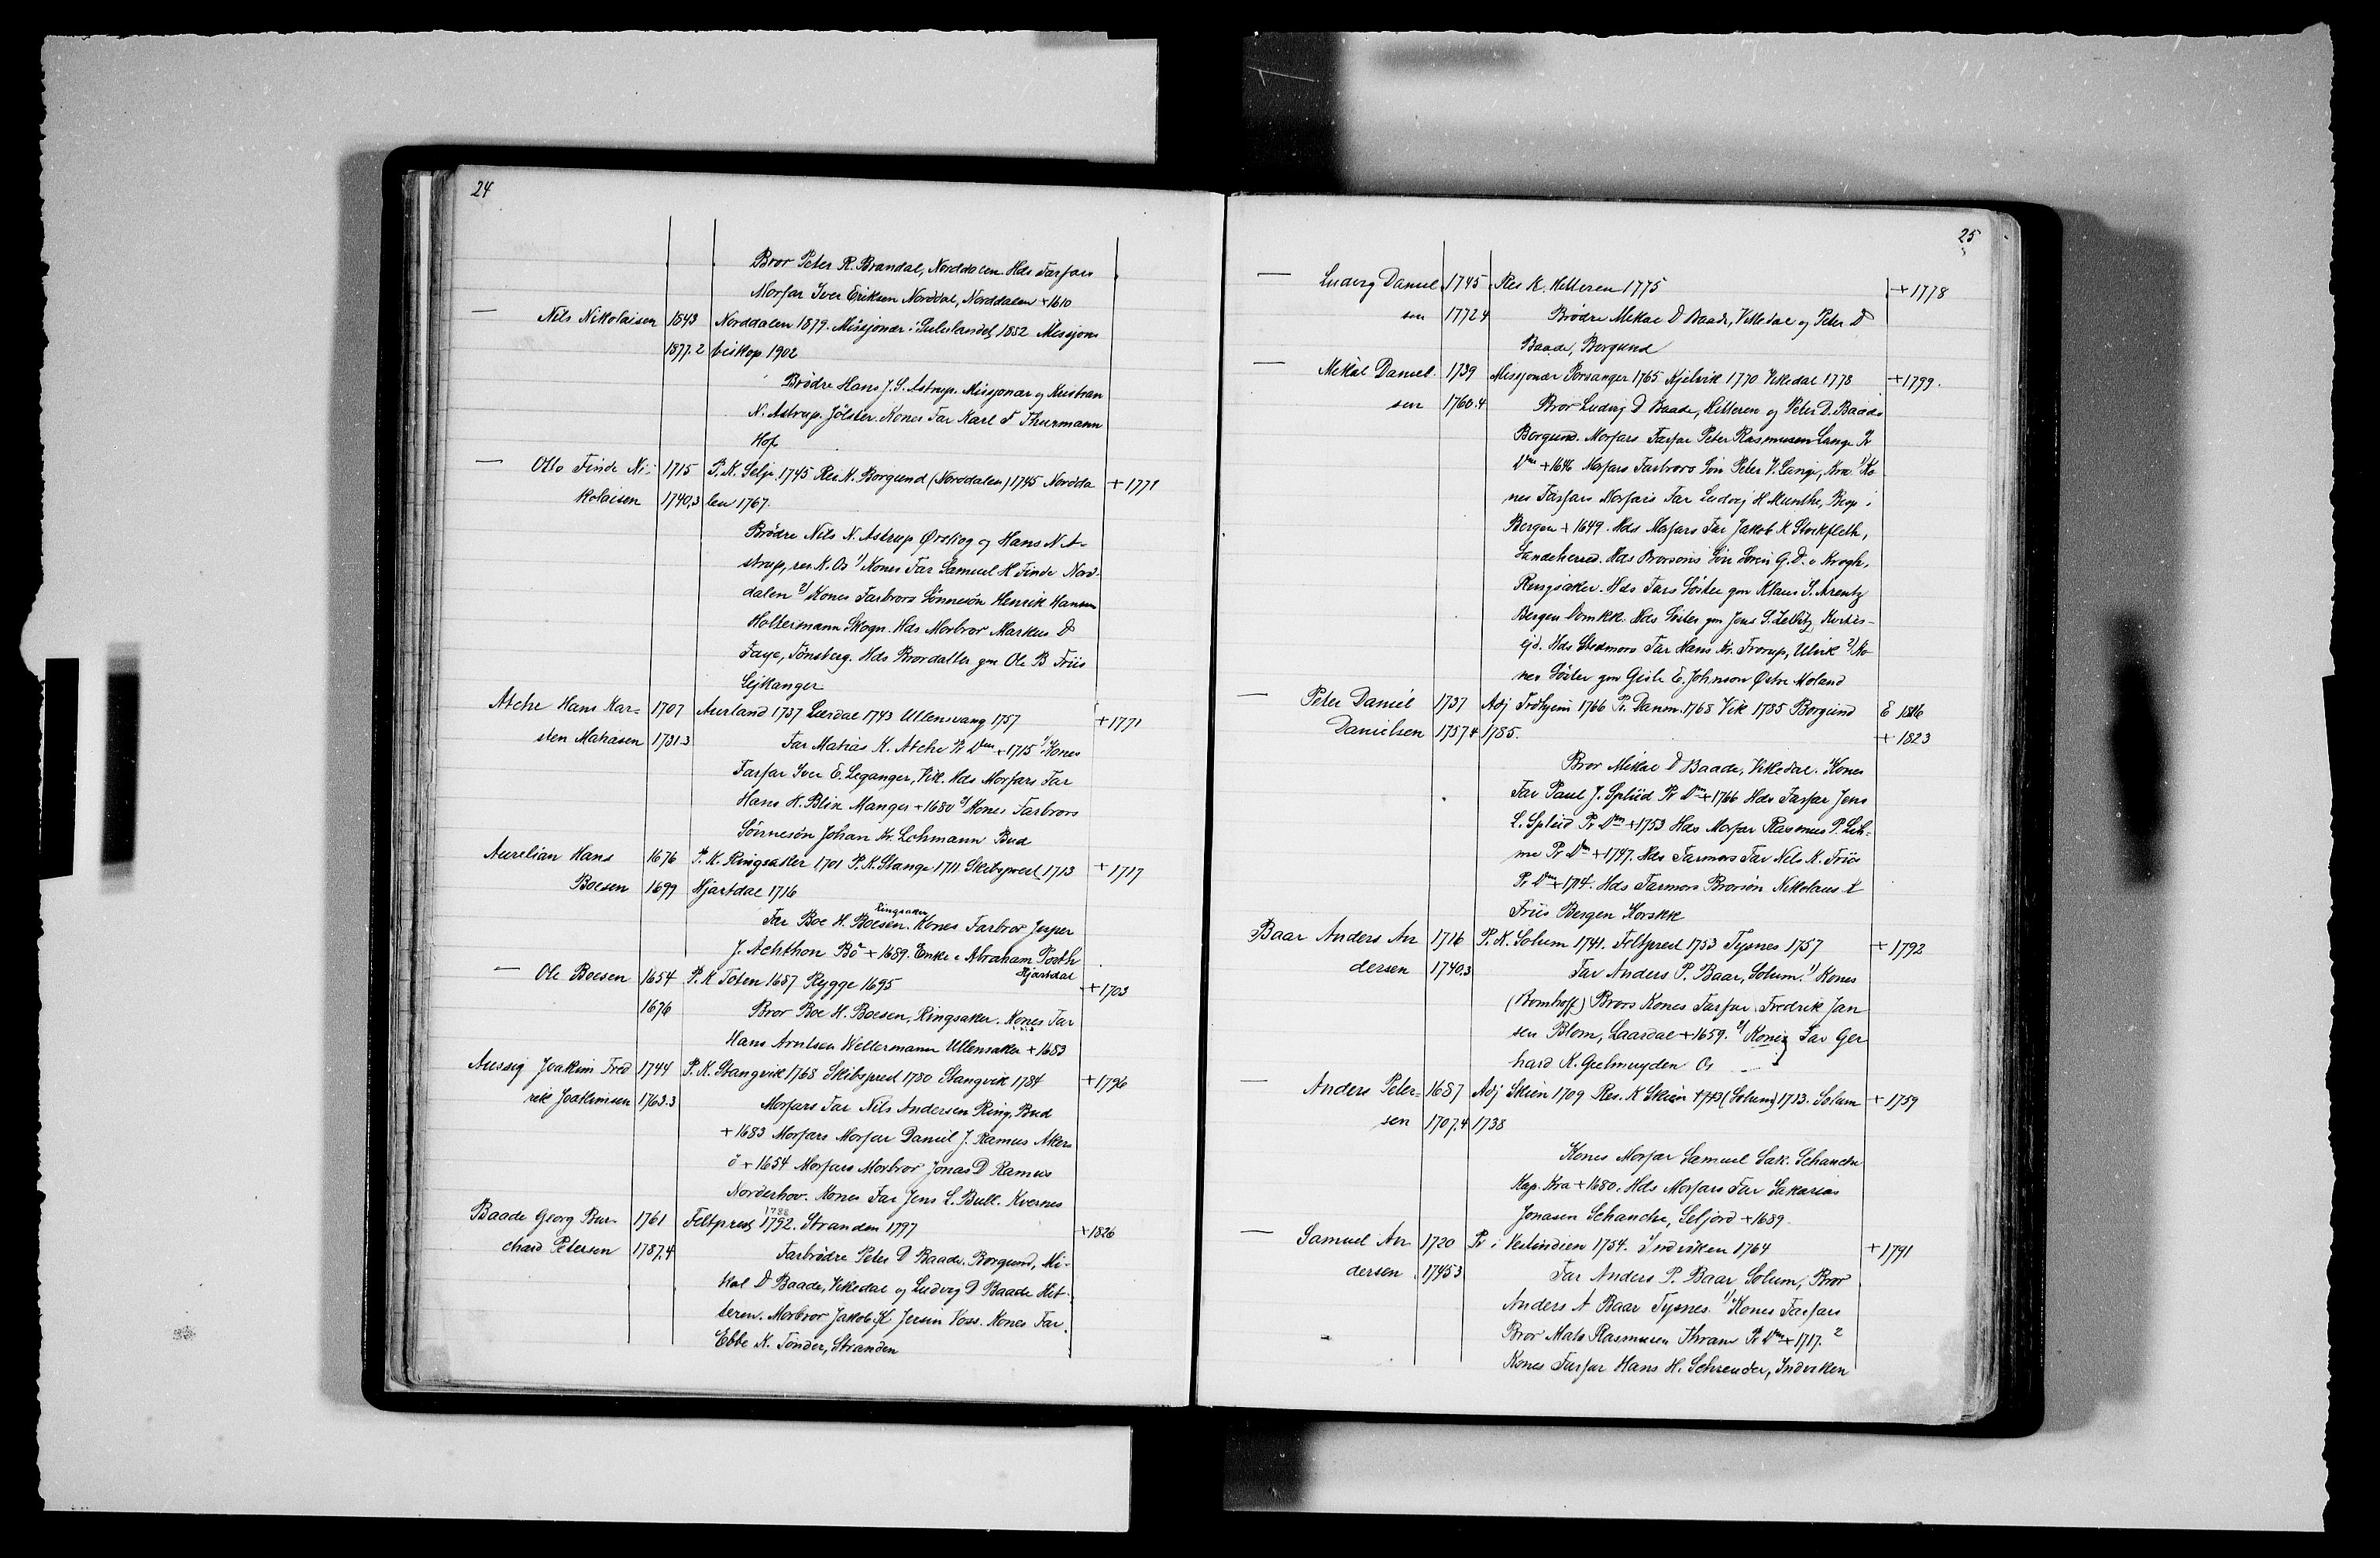 24
Bror Peter R. Brandal, Norddalen Hds Farfars
Morfar Iver Eriksen Norddal, Norddalen + 1610
— Nils Nikolaisen 1843 Norddalen 1879. Missjonær i Sululandet 1882 Missjons
1877.2 biskop 1902
Brödre Hans J. S. Astrup. Missjonær og Kristian
N. Astrup. Jölster. Kones Far Karl F Thurmann
Hof
— Otto Finde Ni- 1715 P. K. Selje 1745 Res. K. Borgund (Norddalen) 1745 Nordda + 1771
kolaisen 1740,3 len 1767.
Brödre Nils N. Astrup Ørskog og Hans N A-
strup, res K. Os 1) Kones Far Samuel H Finde Nord-
dalen 2) Kones Farbrors Sönnesön Henrik Hansen
Holtermann Skogn. Hds Morbror Markus D
Faye, Tönsberg. Hds Brordatter gm Ole B Friis
Lejkanger
Atche Hans Kar- 1707 Aurland 1737 Lærdal 1743 Ullensvang 1757 + 1771
sten Matiasen 1731.3 Far Matias K. Atche Pr Dnm + 1715 1) Kones
Farfar Iver E. Leganger, Vik. Hds Morfars Far
Hans K. Blix Manger + 1680 2) Kones Farbrors
Sönnesön Johan Kr. Lehmann Bud
Aurelian Hans 1676 P. K. Ringsaker 1701 P. K. Stange 1711 Skibspred. 1713 + 1717
Boesen 1699 Hjartdal 1716
Far Boe H. Boesen. Ringsaker Kones Farbror Jesper
J. Achthon Bö + 1689. Enke e Abraham Porth
Hjartdal
— Ole Boesen 1654 P. K Toten 1687 Rygge 1695 + 1703
1676 Bror Boe H. Boesen, Ringsaker. Kones Far
Hans Arntsen Wellermann Ullensaker + 1683
Aussig Joakim Fred 1744 P. K. Stangvik 1768 Skibspred 1780 Stangvik 1784 + 1796
rik Joakimsen 1763.3 Morfars Far Nils Andersen Ring, Bud
+ 1683 Morfars Morfar Daniel J. Ramus Aker
ö + 1654 Morfars Morbror Jonas D Ramus
Norderhov. Kones Far Jens L. Bull. Kvernes
Baade Georg Bur- 1761 Feltpred 1788 1792. Stranden 1797 + 1826
chard Petersen 1787,4 Farbrödre Peter D Baade. Borgund, Mi-
kal D Baade, Vikedal og Ludvig D Baade Hit-
teren. Morbror Jakob K Jersin Voss. Kones Far.
Ebbe K. Tönder, Stranden
25
— Ludvig Daniel 1745 Res K. Hitteren 1775 + 1778
sen 1772 4 Brödre Mikal D Baade, Vikedal og Peter D
Baade, Borgund
— Mikal Daniel- 1739 Missjonær Porsanger 1765 Kjelvik 1770 Vikedal 1778 + 1799.
sen 1760.4 Bror Ludvig D Baade, Hitteren og Peter D. Baade
Borgund. Morfars Farfar Peter Rasmussen Lange Pr
Dnm + 1646 Morfars Farbrors Sön Peter V. Lange, Kra. 1) Ko
nes Farfars Morfars Far Ludvig H Munthe, Bisp i
Bergen + 1649. Hds Morfars Far Jakob K Stockfleth,
Sandeherred. Hds Brorsöns Sön Sören G. D. v Krogh,
Ringsaker. Hds Fars Söster gm Klaus S. Arentz
Bergen Domkk. Hds Söster gm Jens S. Zetlitz, Kvites-
ejd. Hds Stedmors Far Hans Kr. Frorup, Ulvik 2) Ko
nes Söster gm Gisle E. Johnson Østre Moland
— Peter Daniel 1737 Adj Tröthjem 1766 Pr. Danm. 1768 Vik 1785 Borgund E 1816
Danielsen 1757 4 1785. + 1823
Bror Mikal D Baade, Vikedal. Kones
Far Paul J. Splid Pr Dnm + 1766 Hds Farfar Jens
L. Splid Pr Dnm + 1753 Hds Morfar Rasmus P. Leh-
me Pr Dnm + 1747. Hds Farmors Far Nils K. Friis
Pr Dnm + 1714. Hds Farmors Brorsön Nikolaus K
Friis Bergen Korskk
Baar Anders An 1716 P. K. Solum 1741. Feltpred 1753 Tysnes 1757 + 1792
dersen 1740.3 Far Anders P. Baar, Solum. 1) Kones
(Bomhoff) Brors Kones Farfar Fredrik Jan
sen Blom, Laardal + 1659. 2) Kones Far Ger
hard K. Geelmuyden Os
— Anders Peter- 1687 Adj Skien 1709 Res. K Skien 1713 (Solum) 1713. Solum + 1759
sen 1707.4 1738
Kones Morfar Samuel Sak. Schanche
Kap. Kra + 1680. Hds Morfars Far Sakarias
Jonasen Schanche, Seljord + 1689
— Samuel An 1720 Pr i Vestindien 1754. Indviken 1764 + 1791
dersen 1745 3 Far Anders P. Baar Solum, Bror
Anders A Baar Tysnes. 1) Kones Farfars
Bror Mats Rasmussen Thrane Pr Dnm + 1717. 2
Kones Farfar Hans H. Schreuder, Indviken